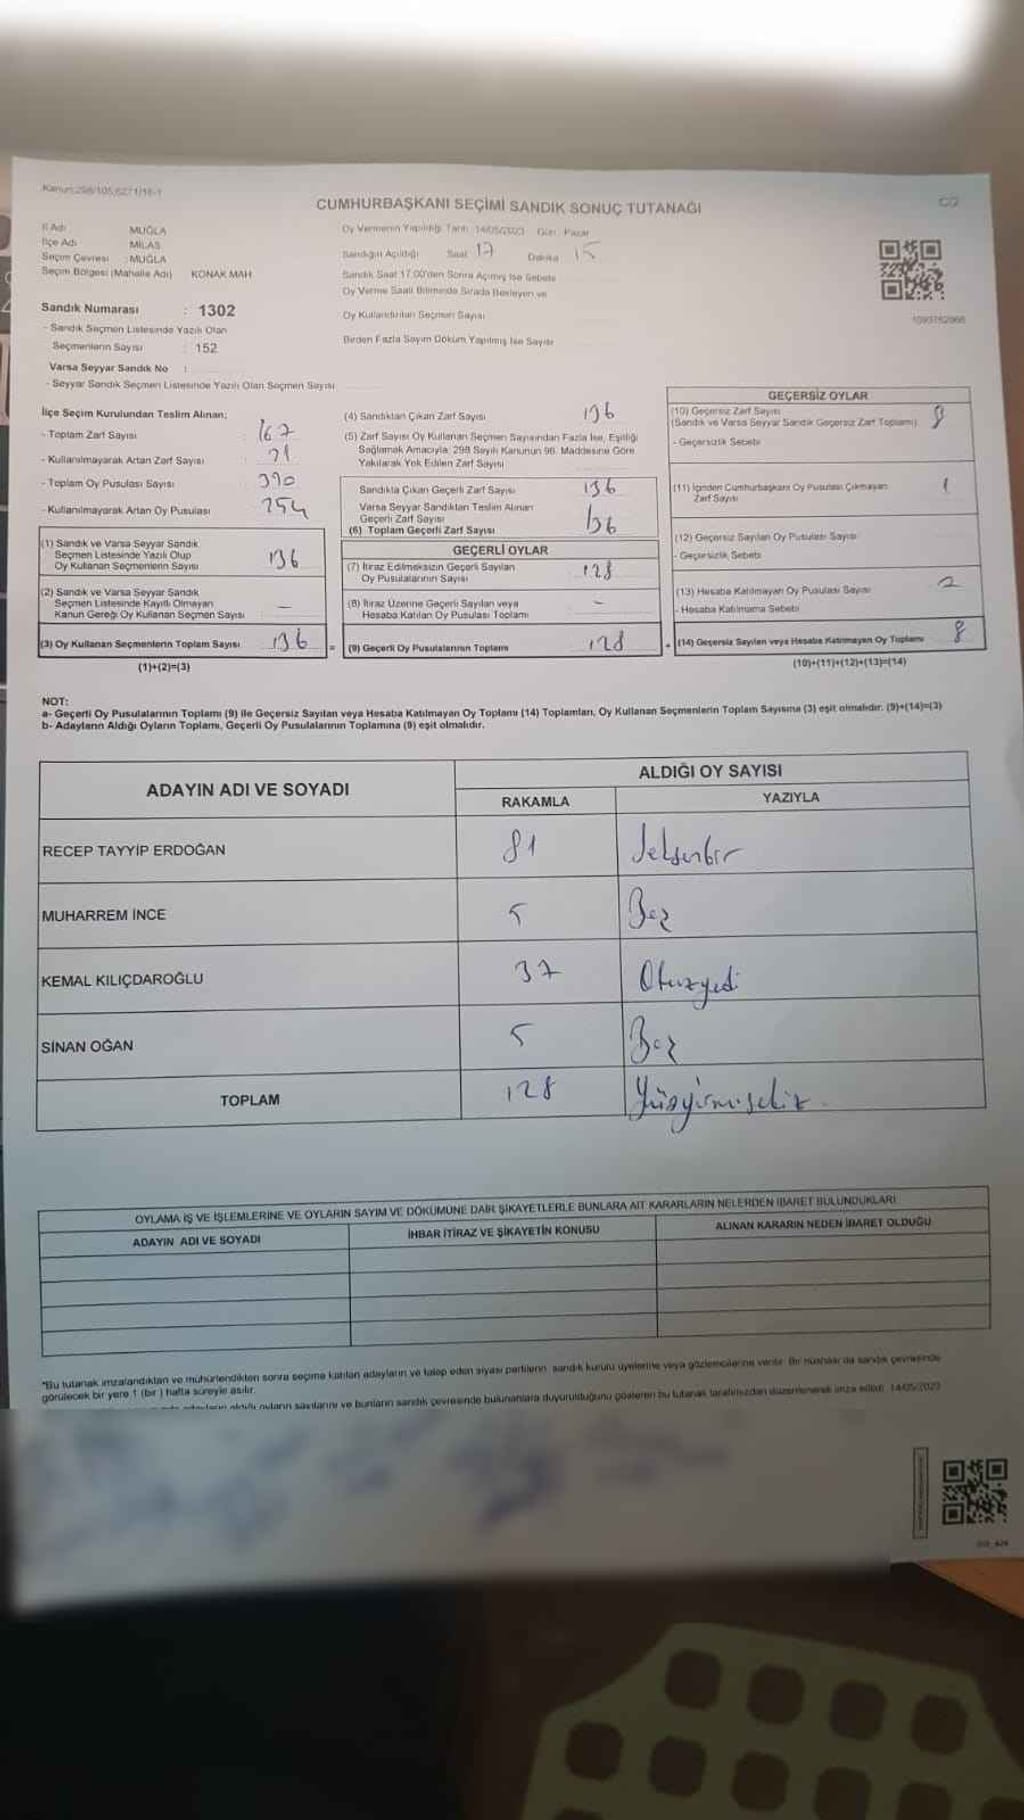 Kanun:298/105,6271/16-1
CUMHURBAŞKANI SEÇİMİ SANDIK SONUÇ TUTANAĞI
İl Adı : MUĞLA
İlçe Adı : MİLAS
Seçim Çevresi : MUĞLA
Seçim Bölgesi (Mahalle Adı) KONAK MAH
Sandık Numarası : 1302
- Sandık Seçmen Listesinde Yazılı Olan
Seçmenlerin Sayısı : 152
Varsa Seyyar Sandık No :
- Seyyar Sandık Seçmen Listesinde Yazılı Olan Seçmen Sayısı
Oy Vermenin Yapıldığı Tarih 14/05/2023 Gün: Pazar
Sandığın Açıldığı Saat 17 Dakika 15
Sandık Saat 17.00'den Sonra Açılmış İse Sebebi
Oy Verme Saati Bitiminde Sırada Bekleyen ve
Oy Kullandırılan Seçmen Sayısı
Birden Fazla Sayım Döküm Yapılmış İse Sayısı
İlçe Seçim Kurulundan Teslim Alınan;
- Toplam Zarf Sayısı : 167
- Kullanılmayarak Artan Zarf Sayısı : 31
- Toplam Oy Pusulası Sayısı : 390
- Kullanılmayarak Artan Oy Pusulası : 254
(1) Sandık ve Varsa Seyyar Sandık
Seçmen Listesinde Yazılı Olup
Oy Kullanan Seçmenlerin Sayısı 136
(2) Sandık ve Varsa Seyyar Sandık
Seçmen Listesinde Kayıtlı Olmayan
Kanun Gereği Oy Kullanan Seçmen Sayısı —
(3) Oy Kullanan Seçmenlerin Toplam Sayısı 136
(1)+(2)=(3)
(4) Sandıktan Çıkan Zarf Sayısı 136
(5) Zarf Sayısı Oy Kullanan Seçmen Sayısından Fazla İse, Eşitliği
Sağlamak Amacıyla; 298 Sayılı Kanunun 98. Maddesine Göre
Yakılarak Yok Edilen Zarf Sayısı
Sandıkta Çıkan Geçerli Zarf Sayısı 136
Varsa Seyyar Sandıktan Teslim Alınan
Geçerli Zarf Sayısı
(6) Toplam Geçerli Zarf Sayısı 136
GEÇERLİ OYLAR
(7) İtiraz Edilmeksizin Geçerli Sayılan
Oy Pusulalarının Sayısı 128
(8) İtiraz Üzerine Geçerli Sayılan veya
Hesaba Katılan Oy Pusulası Toplamı –
= (9) Geçerli Oy Pusulalarının Toplamı 128
GEÇERSİZ OYLAR
(10) Geçersiz Zarf Sayısı
(Sandık ve Varsa Seyyar Sandık Geçersiz Zarf Toplamı)
- Geçersizlik Sebebi
(11) İçinden Cumhurbaşkanı Oy Pusulası Çıkmayan
Zarf Sayısı 1
(12) Geçersiz Sayılan Oy Pusulası Sayısı
- Geçersizlik Sebebi
(13) Hesaba Katılmayan Oy Pusulası Sayısı 2
- Hesaba Katılmama Sebebi
+ (14) Geçersiz Sayılan veya Hesaba Katılmayan Oy Toplamı 8
(10)+(11)+(12)+(13)=(14)
NOT:
a- Geçerli Oy Pusulalarının Toplamı (9) ile Geçersiz Sayılan veya Hesaba Katılmayan Oy Toplamı (14) Toplamları, Oy Kullanan Seçmenlerin Toplam Sayısına (3) eşit olmalıdır. (9)+(14)=(3)
b- Adayların Aldığı Oyların Toplamı, Geçerli Oy Pusulalarının Toplamına (9) eşit olmalıdır.
ADAYIN ADI VE SOYADI
ALDIĞI OY SAYISI
RAKAMLA YAZIYLA
RECEP TAYYİP ERDOĞAN 81 Seksenbir
MUHARREM İNCE 5 Beş
KEMAL KILIÇDAROĞLU 37 Otuzyedi
SİNAN OĞAN 5 Beş
TOPLAM 128 Yüzyirmisekiz
OYLAMA İŞ VE İŞLEMLERİNE VE OYLARIN SAYIM VE DÖKÜMÜNE DAİR ŞİKAYETLERLE BUNLARA AİT KARARLARIN NELERDEN İBARET BULUNDUKLARI
ADAYIN ADI VE SOYADI İHBAR İTİRAZ VE ŞİKAYETİN KONUSU ALINAN KARARIN NEDEN İBARET OLDUĞU
*Bu tutanak imzalandıktan ve mühürlendikten sonra seçime katılan adayların ve talep eden siyasi partilerin sandık kurulu üyelerine veya gözlemcilerine verilir. Bir nüshası da sandık çevresinde
görülecek bir yere 1 (bir) hafta süreyle asılır.
adayların aldığı oyların sayılarını ve bunların sandık çevresinde bulunanlara duyurulduğunu gösteren bu tutanak tarafımızdan düzenlenerek imza edildi. 14/05/2023